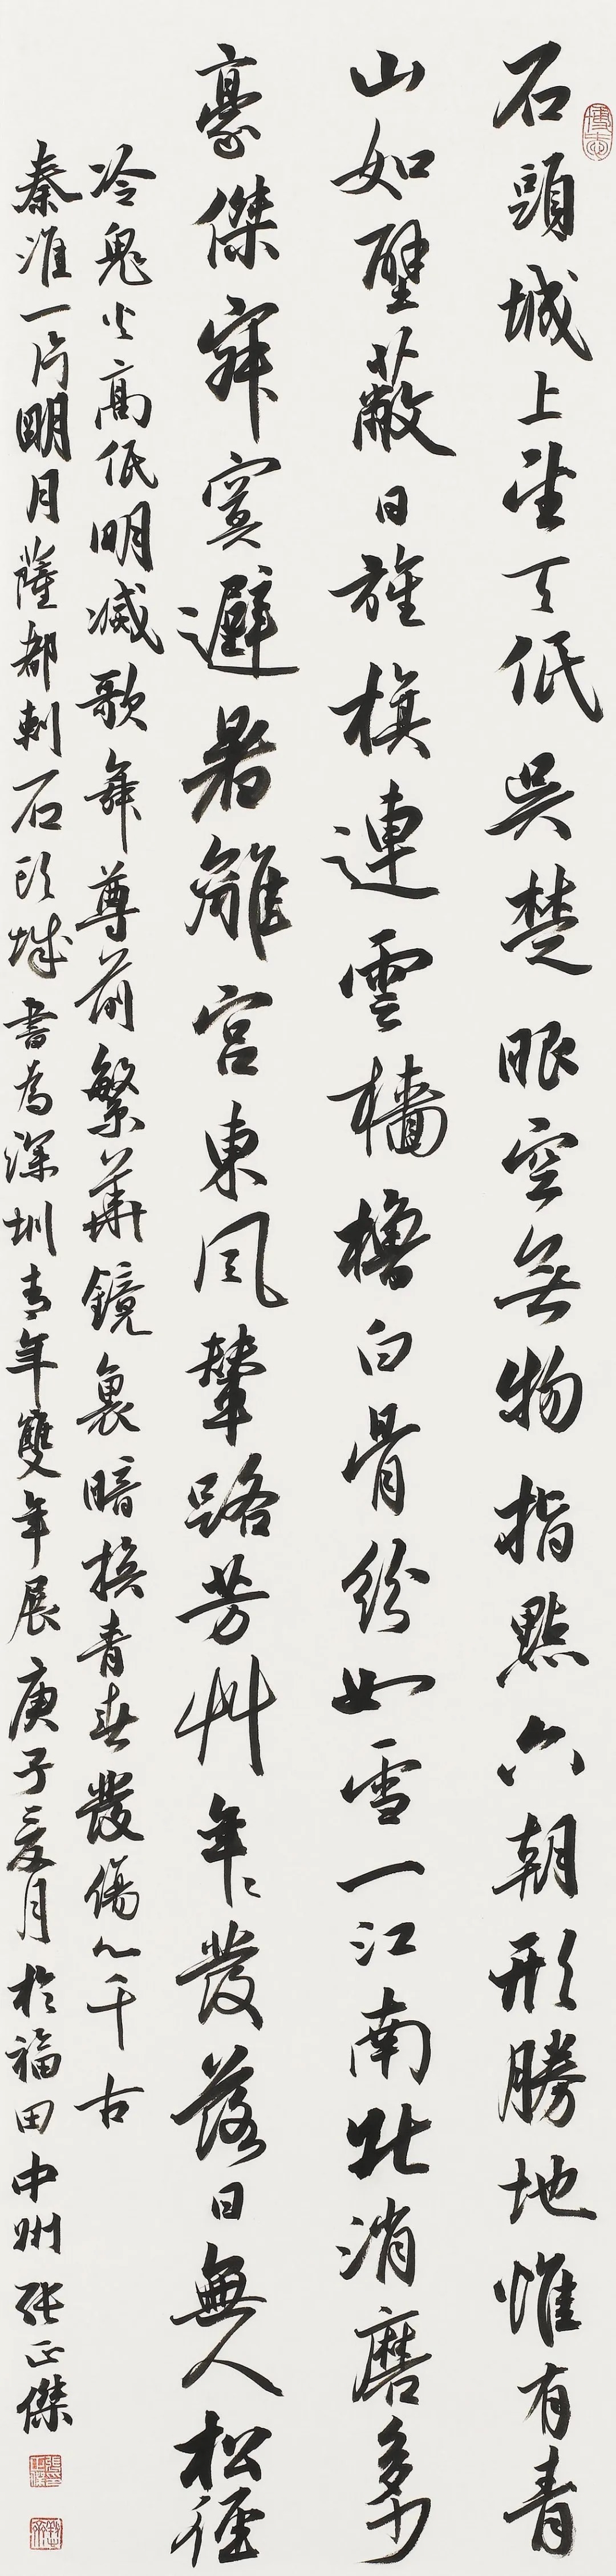 石頭城上望天低吳楚眼空無物指點六朝形勝地惟有青
山如壁蔽日旌旗連雲檣櫓白骨紛如雪一江南北消磨多少
豪傑寂寞避暑離宮東風輦路芳艸年〻發落日無人松徑
冷鬼火高低明滅歌舞尊前繁華鏡裏暗換青春髮傷心千古
秦淮一片明月薩都剌石头城書為深圳青年雙年展庚子夏月於福田中州張正傑